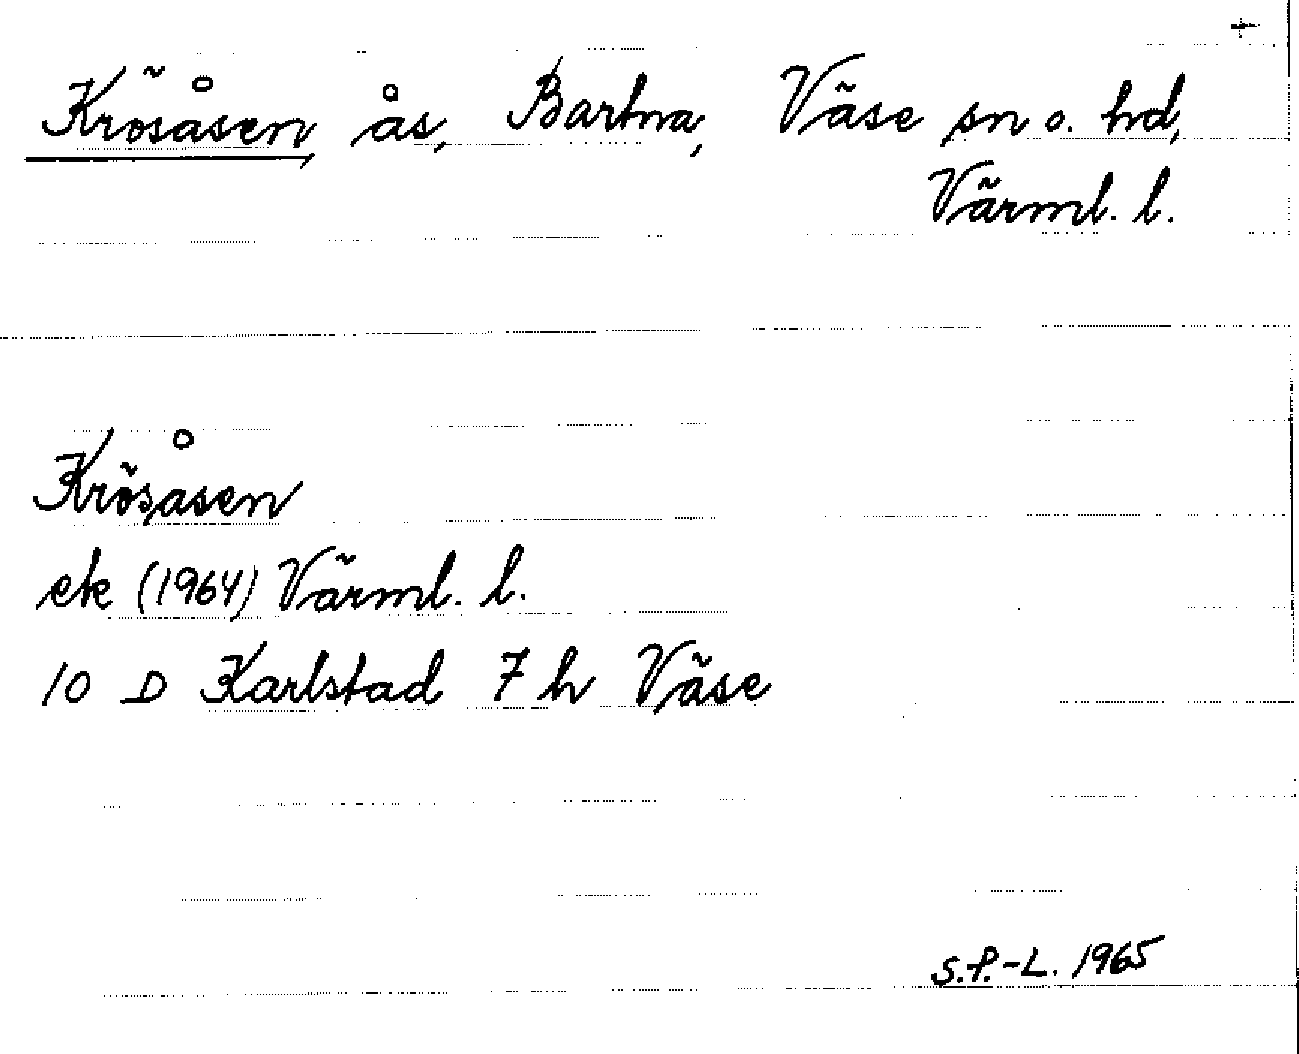 +
Krösåsen, ås, Bartna, Väse sn o. hd,
Värml. l.
Krösåsen
ek (1964) Värml. l.
10 D Karlstad 7 h Väse
S.P.-L. 1965